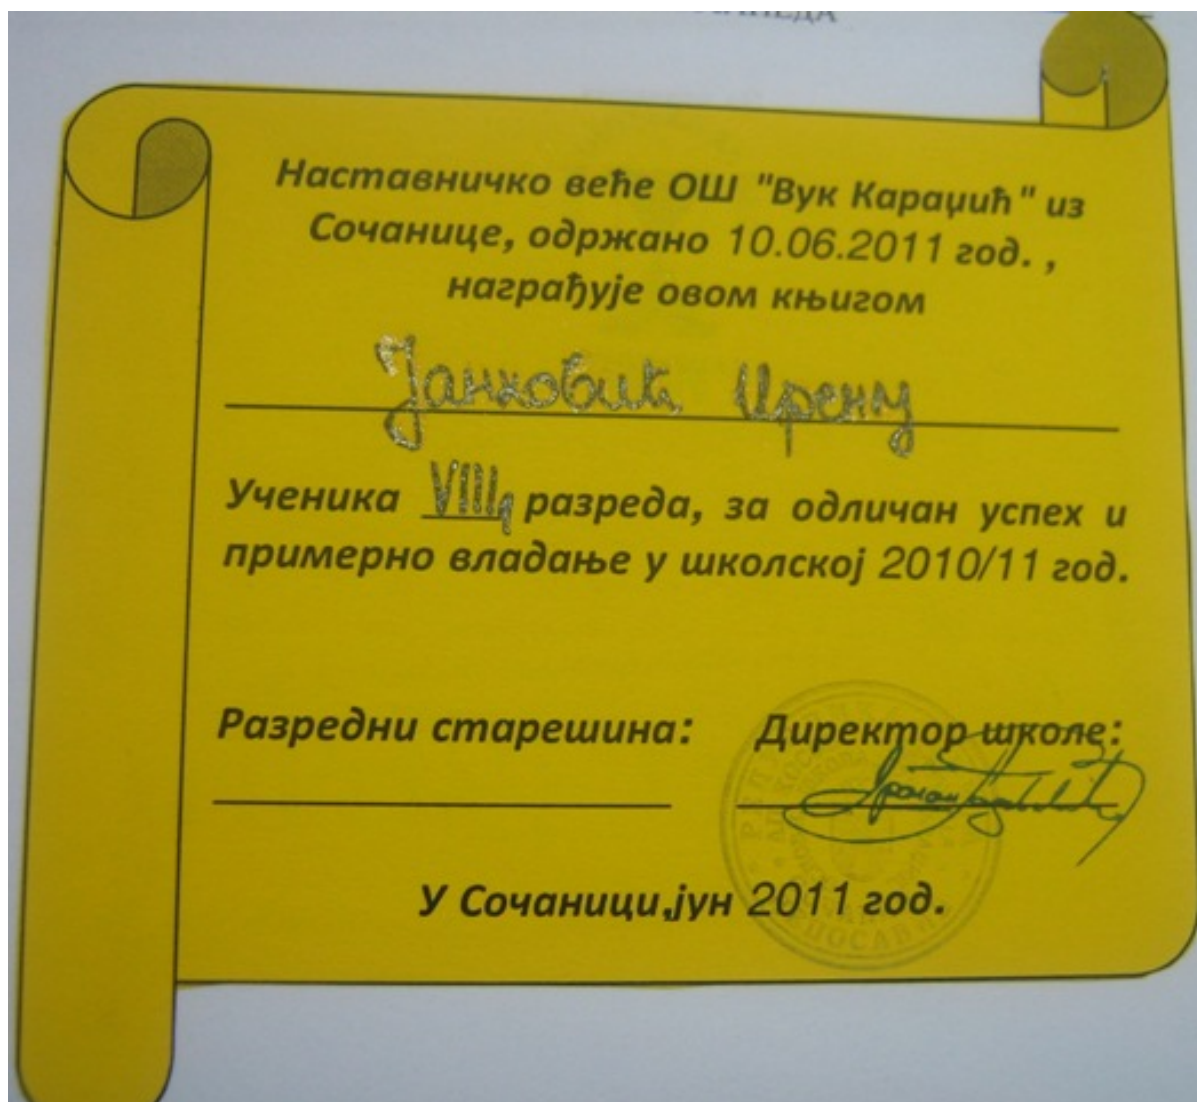 Наставничко веће ОШ "Вук Караџић" из
Сочанице, одржано 10.06.2011 год. ,
награђује овом књигом
Јанковић Ирену
Ученика VIII₁ разреда, за одличан успех и
примерно владање у школској 2010/11 год.
Разредни старешина: Директор школе:
У Сочаници,јун 2011 год.